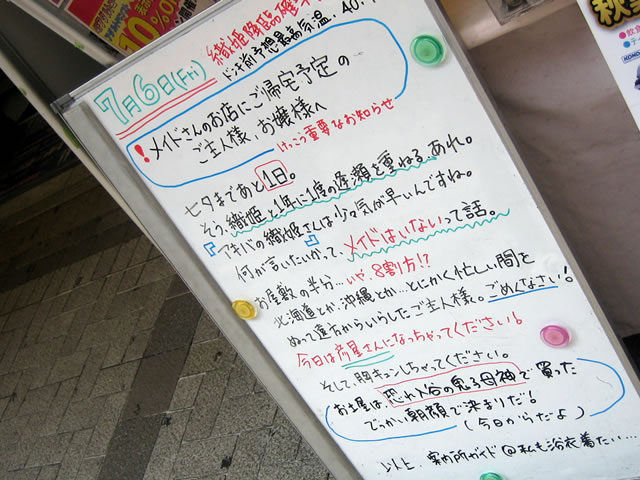 7月6日(Fri)
織姫降臨確率
ドキ前予想最高気温.40.
！メイドさんのお店にご帰宅予定の
ご主人様、お嬢様へ
けっこう重要なお知らせ
七夕まであと1日。
そう、織姫と1年に1度の逢瀬を重ねるあれ。
『アキバの織姫』さんは少々気が早いんですね。
何が言いたいかって、メイドはいないって話。
お屋敷の半分…いや、8割方!?
北海道とか沖縄とか…とにかく忙しい間を
ぬって遠方からいらしたご主人様。ごめんなさい!
今日は彦星さんになっちゃってください!
そして胸キュンしちゃってください。
お土産は、恐れ入谷の鬼子母神で買った
でっかい朝顔で決まりだ!
(今日からだよ)
以上、案内所ガイド@私も浴衣着たい…
10%
秋